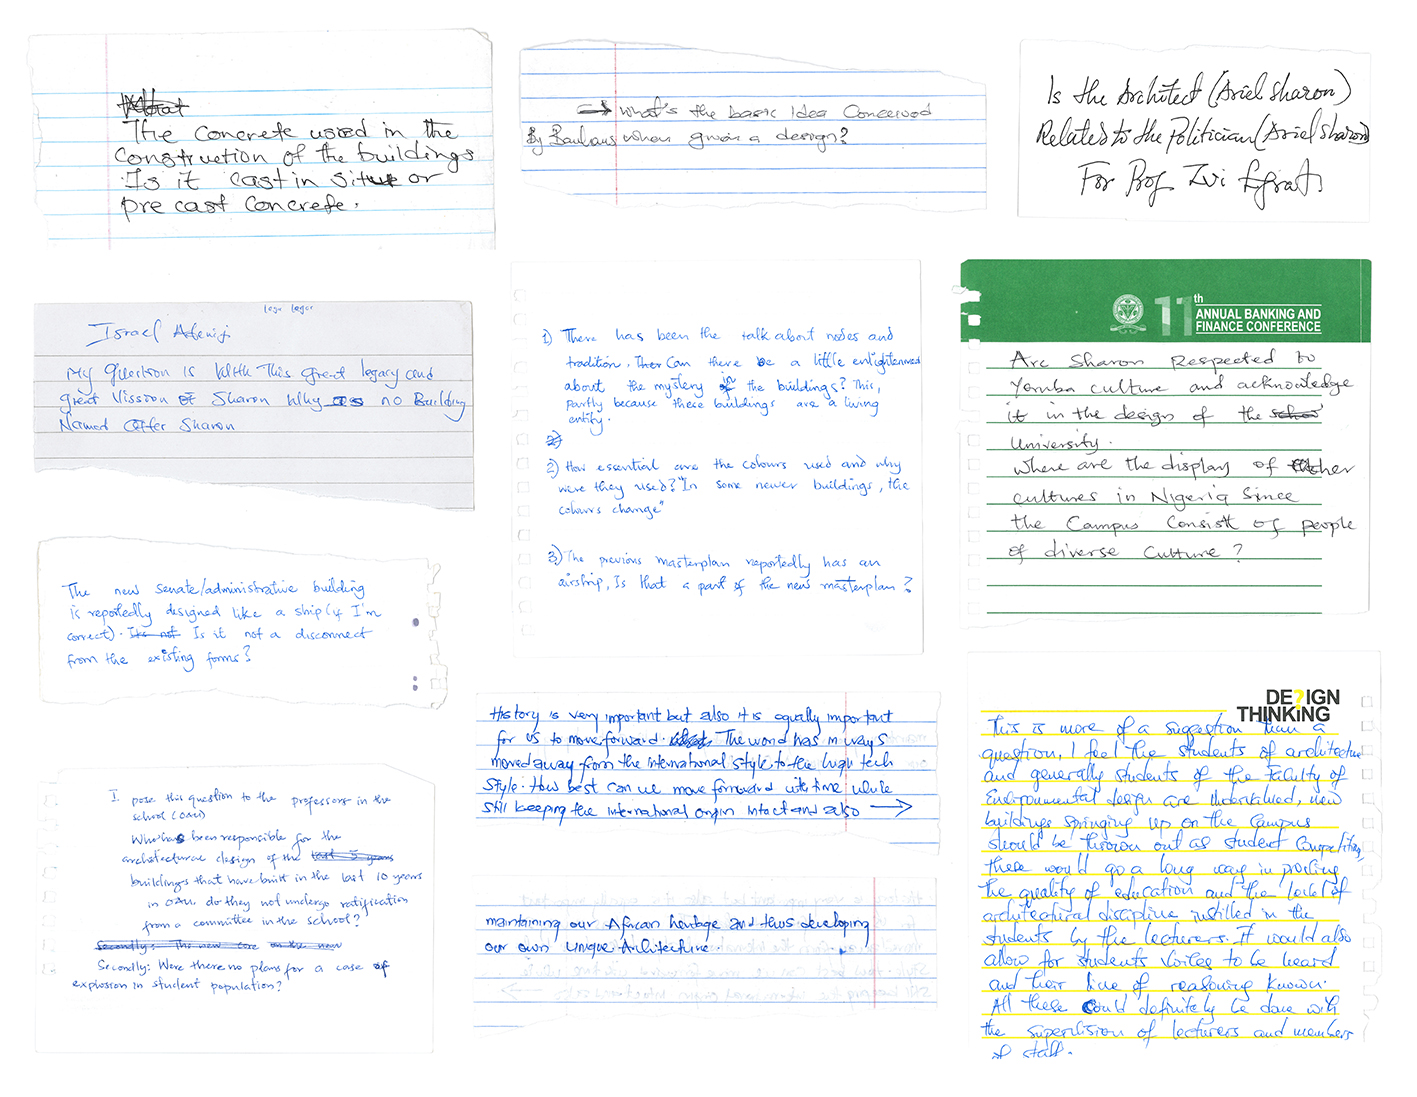 The concrete used in the
construction of the buildings
Is it cast in situ or
pre cast concrete.
What's the basic Idea Conceived
By Bauhaus when given a design?
Is the Architect (Ariel Sharon)
Related to the Politician (Ariel Sharon)
For Prof. Zvi Efrat.
Israel Adeniji
My Question is With This great legacy and
great Vission of Sharon Why no Building
Named After Sharon
1) There has been the talk about nodes and
tradition. Can there be a little enlightenment
about the mystery in the buildings? This,
partly because these buildings are a living
entity.
2) How essential are the colours used and why
were they used? "In some newer buildings, the
colours change"
3) The previous masterplan reportedly has an
airstrip, Is that a part of the new masterplan?
11th
ANNUAL BANKING AND
FINANCE CONFERENCE
Arc Sharon Respected to
Yoruba culture and acknowledge
it in the design of the
University.
Where are the display of other
cultures in Nigeria Since
the Campus Consist of people
of diverse Culture?
The new senate/administrative building
is reportedly designed like a ship (if I'm
correct). Is it not a disconnect
from the existing forms?
History is very important but also it is equally important
for us to move forward. The world has in ways
moved away from the international style to the high tech
style. How best can we move forward with time while
still keeping the international origin intact and also →
maintaining our African heritage and thus developing
our own Unique Architecture.
I pose this question to the professors in the
school (OAU)
Who has been responsible for the
architectural design of the
buildings that have built in the last 10 years
in OAU. do they not undergo ratification
from a committee in the school?
Secondly: Were there no plans for a case of
explosion in student population?
DE?IGN
THINKING
This is more of a suggestion than a
question, I feel the students of architecture
and generally students of the Faculty of
Environmental design are undervalued, new
buildings springing up on the Campus
should be thrown out as student Competition,
these would go a long way in proving
the quality of education and the level of
architectural discipline instilled in the
students by the lecturers. It would also
allow for students voices to be heard
and their line of reasoning known.
All these Could definitely be done with
the supervision of lecturers and members
of staff.